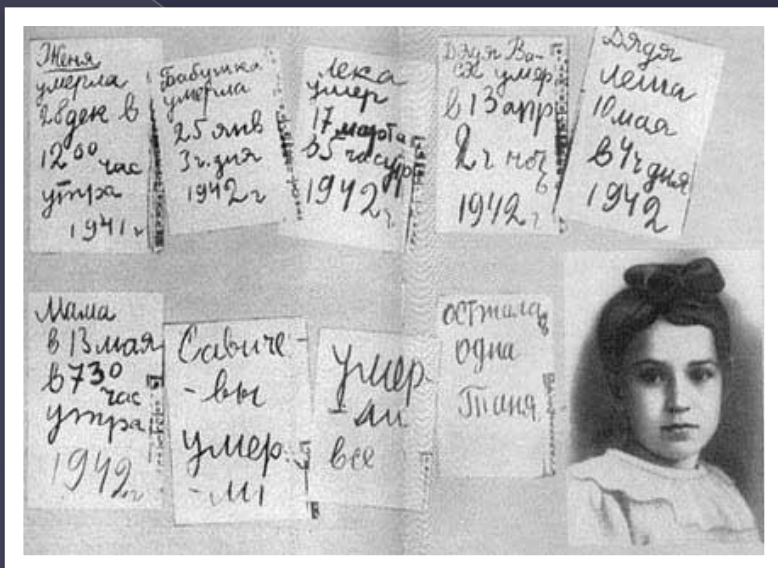 Женя
умерла
28 дек в
12 00 час
утра
1941 г
Бабушка
умерла
25 янв
3 ч. дня
1942 г
Лека
умер
17 марта
в 5 час утр
1942 г.
Дядя Ва-
ся умер
в 13 апр
2 ч ноч
1942 г
Дядя
Леша
10 мая
в 4 ч дня
1942
Мама
в 13 мая
в 7 30
час
утра
1942 г
Савиче-
-вы
умер.
-ли
умер-
-ли
все
Осталась
одна
Таня